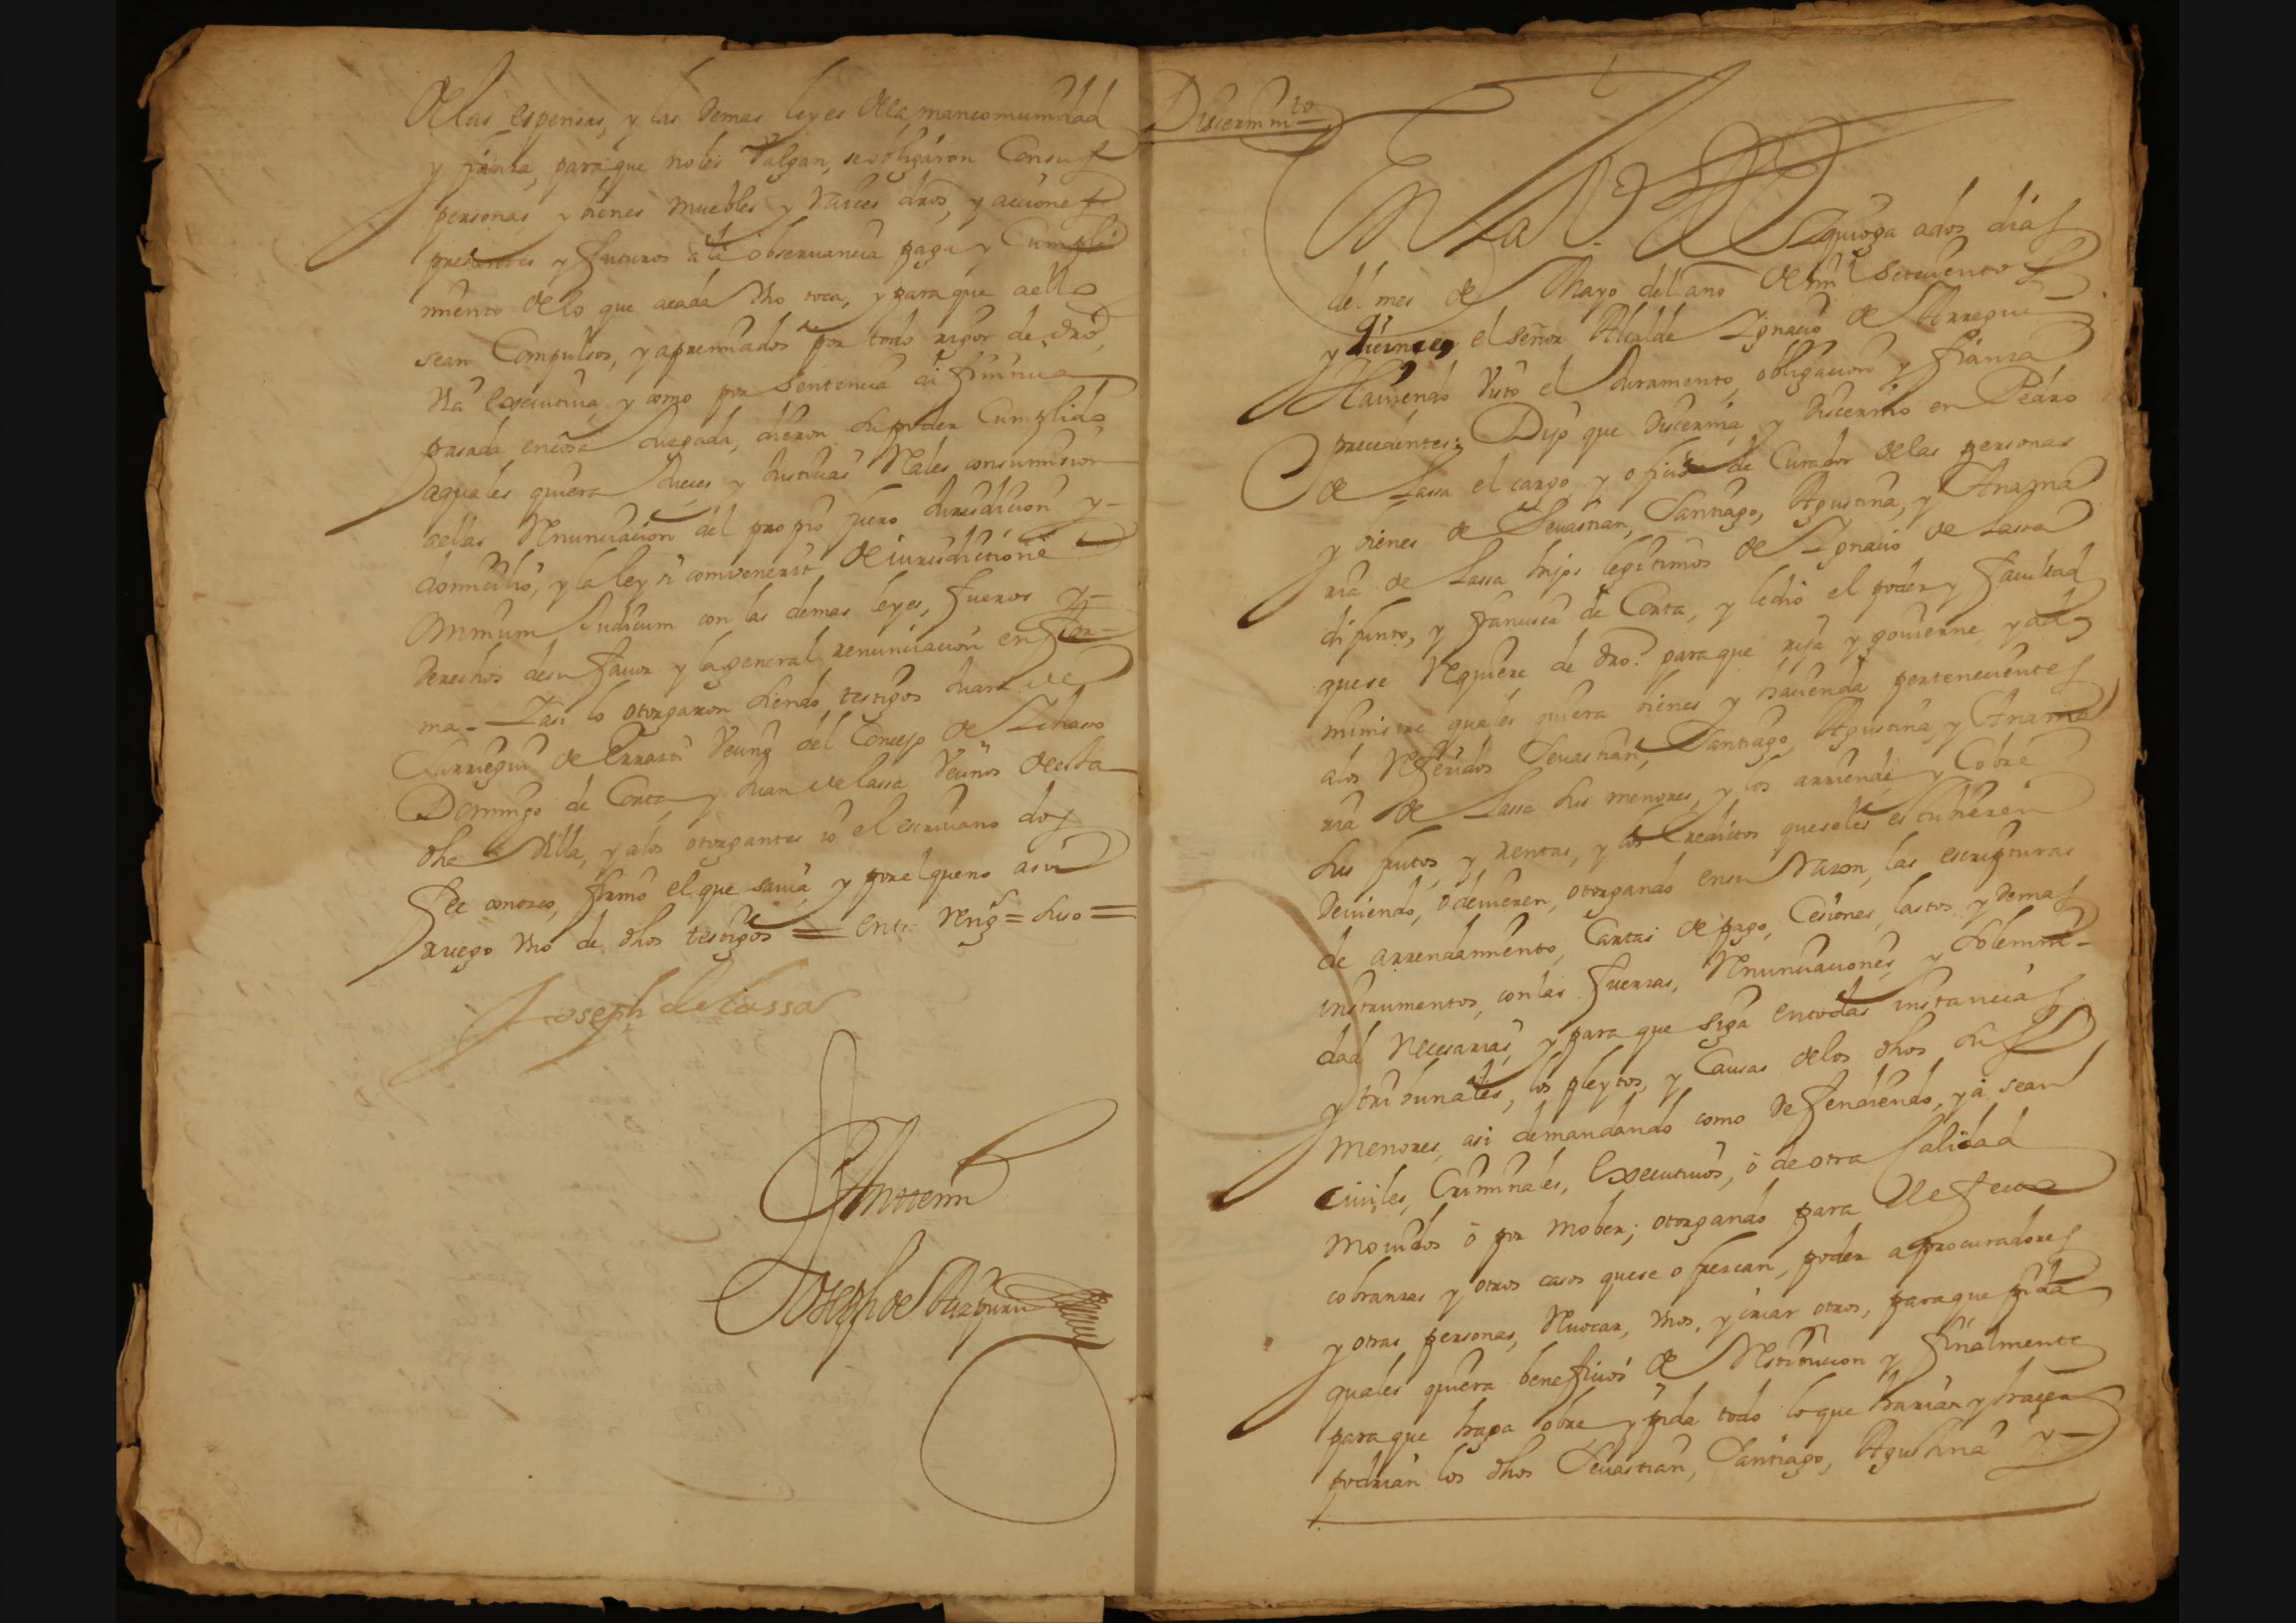 Delas espensas, y las demas leyes dela mancomunidad
y fianza, paraque noles Valgan, se obligaron Consus
personas y bienes muebles y raices dros, y acciones
presentes y futuros ala observancia paga y Cumpli
miento delo que acada Vno toca, y paraque aello
sean Compulsos, y apremiados por todo rigor de dro,
Via executiva y como por Sentencia difinitiva
pasada encosa Juzgada, dieron su poder Cumplido
aquales quiera Jueces y Justicias Reales, consumision
aellas Renunciacion del propio fuero Jurisdicion y
domicilio, y la ley si convenerit de iurisdictione
omnium Judicum con las demas leyes, fueros y
derechos desu favor y la general renunciacion enfor
ma - Iasi lo otorgaron siendo testigos Juan de
de Vecino del Concejo de
Domingo de Conta y Juan de lassa Vecinos desta
dha Villa, y alos otorgantes io el escrivano doy
fee conozco, firmo el que savia, y porelqueno asu
ruego Vno de dhos testigos = entre Rengs = suso =
Joseph de lassa
Antemi
Joseph de Aizpuru
Discernimto
En La V. de Azquioga ados dias
del mes de Mayo del año de mil Setecientos
y el señor Alcalde Ignacio de
Haviendo Visto el Juramento, obligacion y fianza
precedentes; Dijo que discernia, y discernio en Pedro
de Lassa el cargo, y oficio de Curador delas personas
y bienes de Sevastian, Santiago, Agustina, y Anama
ria de Lassa hijos legitimos de Ignacio de Lassa
difunto, y francisca de Conta, y ledio el poder y facultad
quese Requiere de dro. paraque rija y govierne, y ad
ministre quales quiera bienes y hacienda pertenecientes
alos Referidos Sevastian, Santiago, Agustina, y Anama
ria de Lassa sus menores, y los arriende, y Cobre
sus frutos, y rentas, y los reditos queseles estubieren
deviendo, o devieren, otorgando ensu Razon, las escripturas
de arrendamiento, Cartas de pago, Cesiones, lastos, y demas
instrumentos, conlas fuerzas, Renunciaciones, y Solemni-
dad Necesarias, y para que siga entodas instancias
y tribunales, los pleytos, y Causas delos dhos sus
menores, asi demandando como defendiendo, ya sean
civiles, Criminales, Executivos, ò de otra Calidad
movidos ò por mober; otorgando para defensa
cobranzas y otros casos quese ofrezcan, poder aprocuradores
y otras personas, Revocar, Vnos, y criar otros, paraque pida
quales quiera beneficios de Restitucion y finalmente
paraque haga obre y pida todo loque harian y hacer
podrian los dhos Sevastian, Santiago, Agustina y